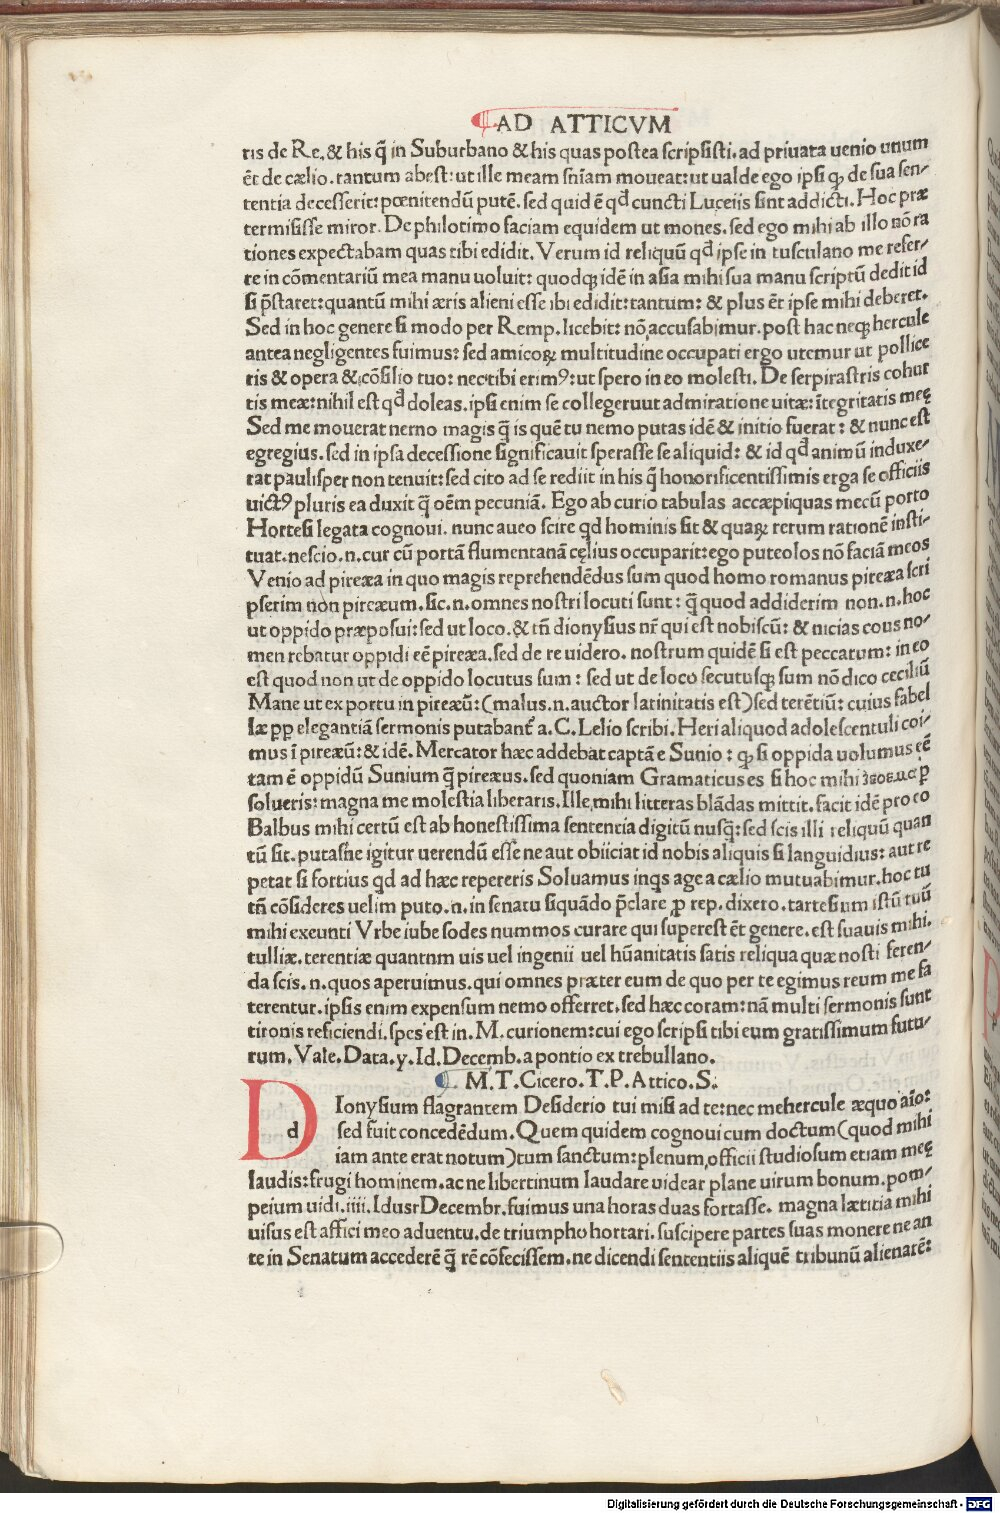 AD ATTICVM
ris de Re. & his q̃ in Suburbano & his quas postea scripsisti. ad priuata uenio unum
ẽt de cælio. tantum abest: ut ille meam sñiam moueat: ut ualde ego ipsi ꝙ de sua sen-
tentia decesserit: pœnitendũ putẽ. sed quid ẽ qđ cuncti Luceiis sint addicti. Hoc præ
termisisse miror. De philotimo faciam equidem ut mones. sed ego mihi ab illo nõ ra
tiones expectabam quas tibi edidit. Verum id reliquũ qđ ipse in tusculano me refer-
re in cõmentariũ mea manu uoluit: quodqꝫ idẽ in asia mihi sua manu scriptũ dedit id
si p̃staret: quantũ mihi æris alieni esse ibi edidit: tantum: & plus ẽt ipse mihi deberet.
Sed in hoc genere si modo per Remp. licebit: nõ accusabimur. post hac neqꝫ hercule
antea negligentes fuimus: sed amicoꝝ multitudine occupati ergo utemur ut pollice
ris & opera & cõsilio tuo: nec tibi erimꝰ: ut spero in eo molesti. De serpirastris cohur
tis meæ: nihil est qđ doleas. ipsi enim se collegeruut admiratione uitæ: ĩtegritatis meę
Sed me mouerat nemo magis q̃ is quẽ tu nemo putas idẽ & initio fuerat: & nunc est
egregius. sed in ipsa decessione significauit sperasse se aliquid: & id qđ animũ induxe-
rat paulisper non tenuit: sed cito ad se rediit in his q̃ honorificentissimis erga se officiis
uictꝰ pluris ea duxit q̃ oẽm pecuniã. Ego ab curio tabulas accæpi quas mecũ porto
Hortesi legata cognoui. nunc aueo scire qd hominis sit & quaꝝ rerum rationẽ insti-
tuat. nescio. n. cur cũ portã flumentanã cęlius occuparit: ego puteolos nõ faciã meos
Venio ad piræxa in quo magis reprehendẽdus sum quod homo romanus piræxa scri
pserim non piræxum. sic. n. omnes nostri locuti sunt: q̃ quod addiderim non. n. hoc
ut oppido præposui: sed ut loco. & tñ dionysius nr̃ qui est nobiscũ: & nicias cous no-
men rebatur oppidi eẽ piræxa. sed de re uidero. nostrum quidẽ si est peccatum: in eo
est quod non ut de oppido locutus sum: sed ut de loco secutusqꝫ sum nõ dico ceciliũ
Mane ut ex portu in pireæũ: (malus. n. auctor latinitatis est) sed terẽtiũ: cuius fabel
læ ꝓp elegantiã sermonis putabant̃ a. C. Lelio scribi. Heri aliquod adolescentuli coi-
mus ĩ pireæũ: & idẽ. Mercator hæc addebat captã e Sunio: ꝙ si oppida uolumus eẽ
tam ẽ oppidũ Sunium q̃ piræus. sed quoniam Gramaticus es si hoc mihi p
solueris: magna me molestia liberaris. Ille mihi litteras blãdas mittit. facit idẽ pro eo
Balbus mihi certũ est ab honestissima sententia digitũ nusq̃: sed scis illi reliquũ quan
tũ sit. putasne igitur uerendũ esse ne aut obiiciat id nobis aliquis si languidius: aut re
petat si fortius qd ad hæc repereris Soluamus inqs age a cælio mutuabimur. hoc tu
tñ cõsideres uelim puto. n. in senatu siquãdo p̃clare ꝓ rep. dixero. tartesium istũ tuũ
mihi exeunti Vrbe iube sodes nummos curare qui superest ẽt genere. est suauis mihi.
tulliæ. terentiæ quantnm uis uel ingenii uel hũanitatis satis reliqua quæ nosti feren-
da scis. n. quos aperuimus. qui omnes præter eum de quo per te egimus reum me fa
terentur. ipsis enim expensum nemo offerret. sed hæc coram: nã multi sermonis sunt
tironis reficiendi. spes est in. M. curionem: cui ego scripsi tibi eum gratissimum futu-
rum. Vale. Data. y. Id. Decemb. a pontio ex trebullano.
. M. T. Cicero. T. P. Attico. S.
D d Ionysium flagrantem Desiderio tui misi ad te: nec mehercule æquo aĩo:
sed fuit concedẽdum. Quem quidem cognoui cum doctum (quod mihi
iam ante erat notum) tum sanctum: plenum, officii studiosum etiam meę
laudis: frugi hominem. ac ne libertinum laudare uidear plane uirum bonum. pom-
peium uidi. iiii. Idusr Decembr. fuimus una horas duas fortasse. magna lætitia mihi
uisus est affici meo aduentu. de triumpho hortari. suscipere partes suas monere ne an
te in Senatum accederẽ q̃ rẽ cõfecissem. ne dicendi sententiis aliquẽ tribunũ alienarẽ:
Digitalisierung gefördert durch die Deutsche Forschungsgemeinschaft - DFG